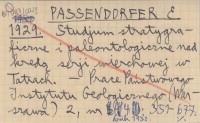 PASSENDORFER E
1929. Studjum stratygra-
ficzne i paleontologiczne nad
kredą serji wierchowej w
Tatrach. Prace Państwowego
Instytutu Geologicznego (War-
szawa) 2, 351-677.